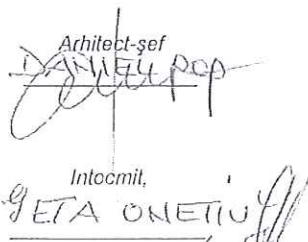 Arhitect-șef
DANIEL POP
Intocmit,
GETA ONETIU